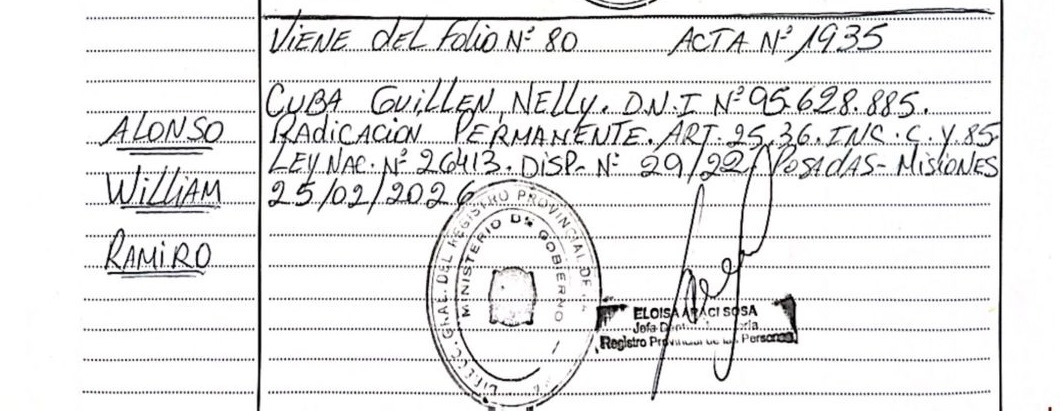 VIENE DEL FOLIO Nº 80 ACTA Nº 1935
CUBA GUILLEN, NELLY. D.N.I Nº 95.628.885.
RADICACION PERMANENTE. ART. 25, 36. INC. C. Y 85
LEY NAC. Nº 26413. DISP. Nº 29/22 POSADAS - MISIONES
25/02/2026
ALONSO
WILLIAM
RAMIRO
GRAL. DEL REGISTRO PROVINCIAL DE
MINISTERIO DE GOBIERNO
ELOISA ARACI SOSA
Jefa
Registro Provincial de las Personas